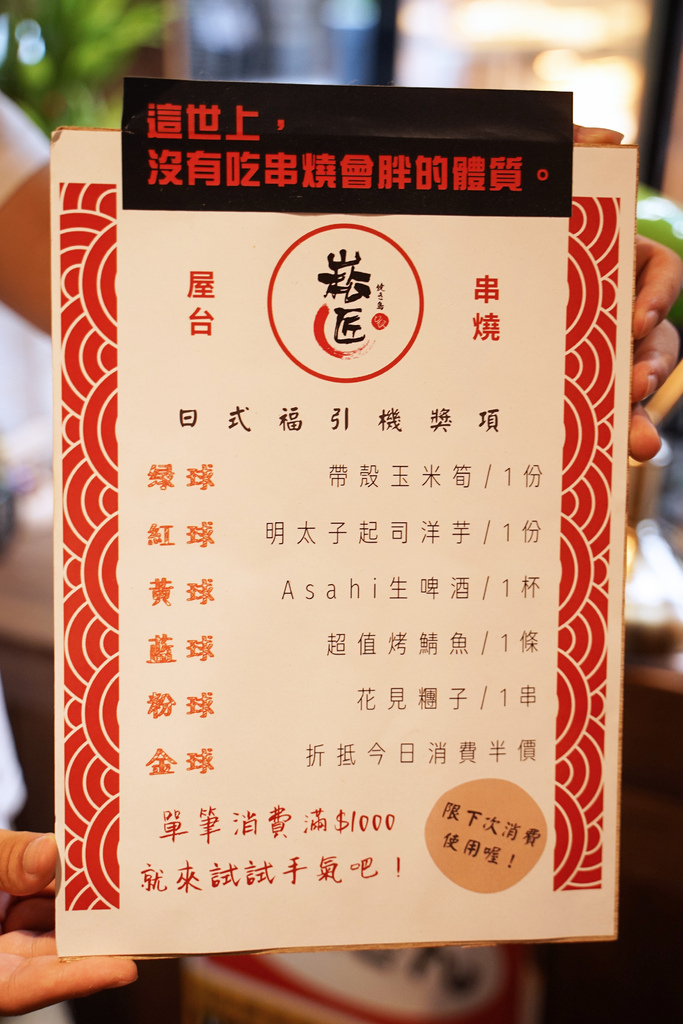 這世上，
沒有吃串燒會胖的體質。
屋台
崧匠
焼き鳥
串燒
日式福引機獎項
綠球 帶殼玉米筍/1份
紅球 明太子起司洋芋/1份
黃球 Asahi生啤酒/1杯
藍球 超值烤鯖魚/1條
粉球 花見糰子/1串
金球 折抵今日消費半價
單筆消費滿$1000
就來試試手氣吧！
限下次消費
使用喔！